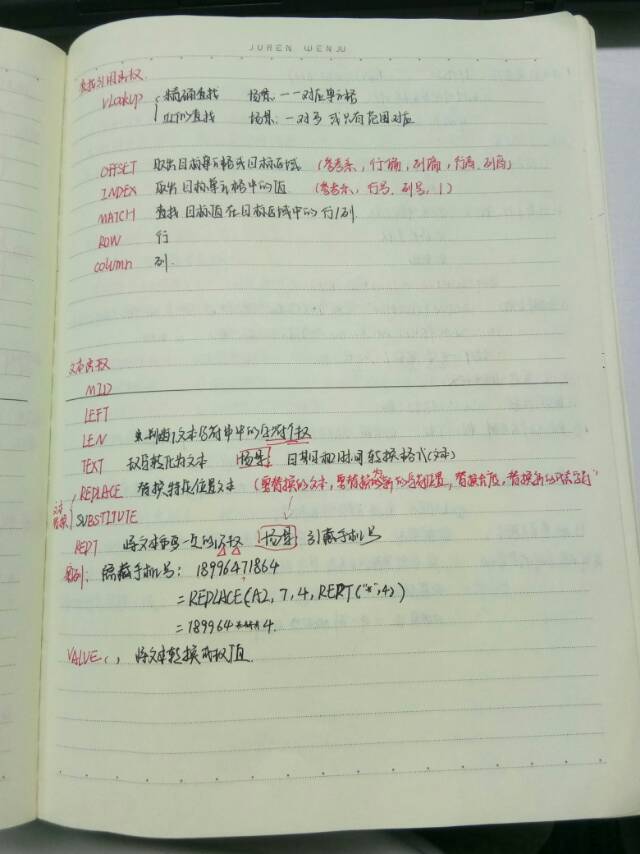 JUREN WENJU
查找引用函数
VLookup 精确查找 场景:一一对应单元格
近似查找 场景:一对多 或只有范围对应
OFFSET 取出目标单元格或目标区域 (参考系,行偏,列偏,行高,列宽)
INDEX 取出目标单元格中的值 (参考系,行号,列号,1)
MATCH 查找目标值在目标区域中的行/列.
ROW 行
column 列.
文本函数
MID
LEFT
LEN 文本字符串中的字符个数
TEXT 数值转化为文本 场景 日期和时间转换格式(文本)
文本替换
REPLACE 替换特定位置文本 (要替换的文本,要替换的字符位置,替换长度,替换新的文本字符
SUBSTITUTE
REPT 将文本重复一定的次数 场景 引藏手机号
案例: 隐藏手机号: 18996471864
=REPLACE(A2,7,4,RERT("*",4))
=189964****4.
VALUE, , 将文本转换成数值.